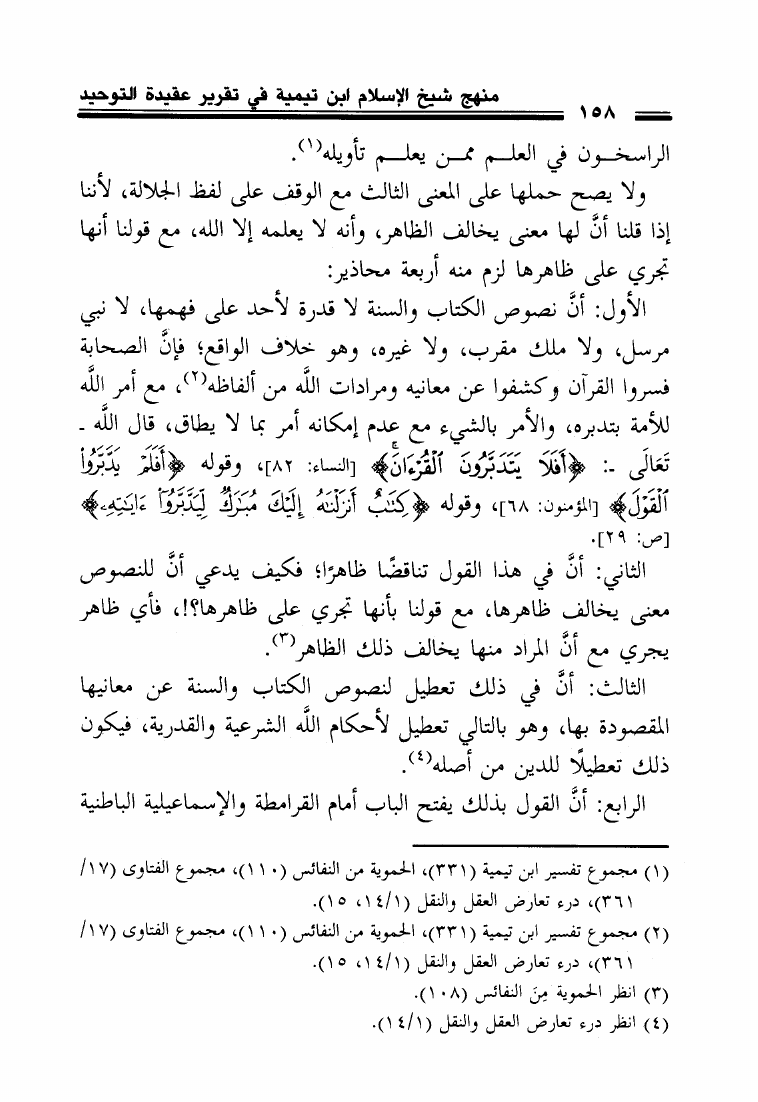 منهج شيخ الإسلام ابن تيمية في تقرير عقيدة التوحيد
١٥٨
الراسخـون في العلـم ممـن يعلـم تأويله(١).
ولا يصح حملها على المعنى الثالث مع الوقف على لفظ الجلالة، لأننا
إذا قلنا أنَّ لها معنى يخالف الظاهر، وأنه لا يعلمه إلا الله، مع قولنا أنها
تجري على ظاهرها لزم منه أربعة محاذير:
الأول: أنَّ نصوص الكتاب والسنة لا قدرة لأحد على فهمها، لا نبي
مرسل، ولا ملك مقرب، ولا غيره، وهو خلاف الواقع؛ فإنَّ الصحابة
فسروا القرآن وكشفوا عن معانيه ومرادات اللَّه من ألفاظه(٢)، مع أمر اللَّه
للأمة بتدبره، والأمر بالشيء مع عدم إمكانه أمر بما لا يطاق، قال اللَّه ـ
تَعَالَى ـ: ﴿أَفَلَا يَتَدَبَّرُونَ ٱلْقُرْءَانَۚ﴾ [النساء: ٨٢]، وقوله ﴿أَفَلَمْ يَدَّبَّرُوا۟
ٱلْقَوْلَ﴾ [المؤمنون: ٦٨]، وقوله ﴿كِتَٰبٌ أَنزَلْنَٰهُ إِلَيْكَ مُبَٰرَكٌ لِّيَدَّبَّرُوٓا۟ ءَايَٰتِهِۦ﴾
[ص: ٢٩].
الثاني: أنَّ في هذا القول تناقضًا ظاهرًا؛ فكيف يدعي أنَّ للنصوص
معنى يخالف ظاهرها، مع قولنا بأنها تجري على ظاهرها؟!، فأي ظاهر
يجري مع أنَّ المراد منها يخالف ذلك الظاهر(٣).
الثالث: أنَّ في ذلك تعطيل لنصوص الكتاب والسنة عن معانيها
المقصودة بها، وهو بالتالي تعطيل لأحكام اللَّه الشرعية والقدرية، فيكون
ذلك تعطيلًا للدين من أصله(٤).
الرابع: أنَّ القول بذلك يفتح الباب أمام القرامطة والإسماعيلية الباطنية
(١) مجموع تفسير ابن تيمية (٣٣١)، الحموية من النفائس (١١٠)، مجموع الفتاوى (١٧/
٣٦١)، درء تعارض العقل والنقل (١٤/١، ١٥).
(٢) مجموع تفسير ابن تيمية (٣٣١)، الحموية من النفائس (١١٠)، مجموع الفتاوى (١٧/
٣٦١)، درء تعارض العقل والنقل (١٤/١، ١٥).
(٣) انظر الحموية مِنَ النفائس (١٠٨).
(٤) انظر درء تعارض العقل والنقل (١٤/١).